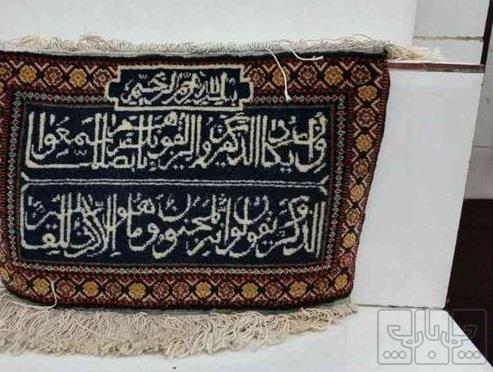 بسم الله الرحمن الرحیم
وان یکاد الذین کفروا لیزلقونک بابصارهم لما سمعوا
الذکر و یقولون انه لمجنون وما هو الا ذکر للعالمین